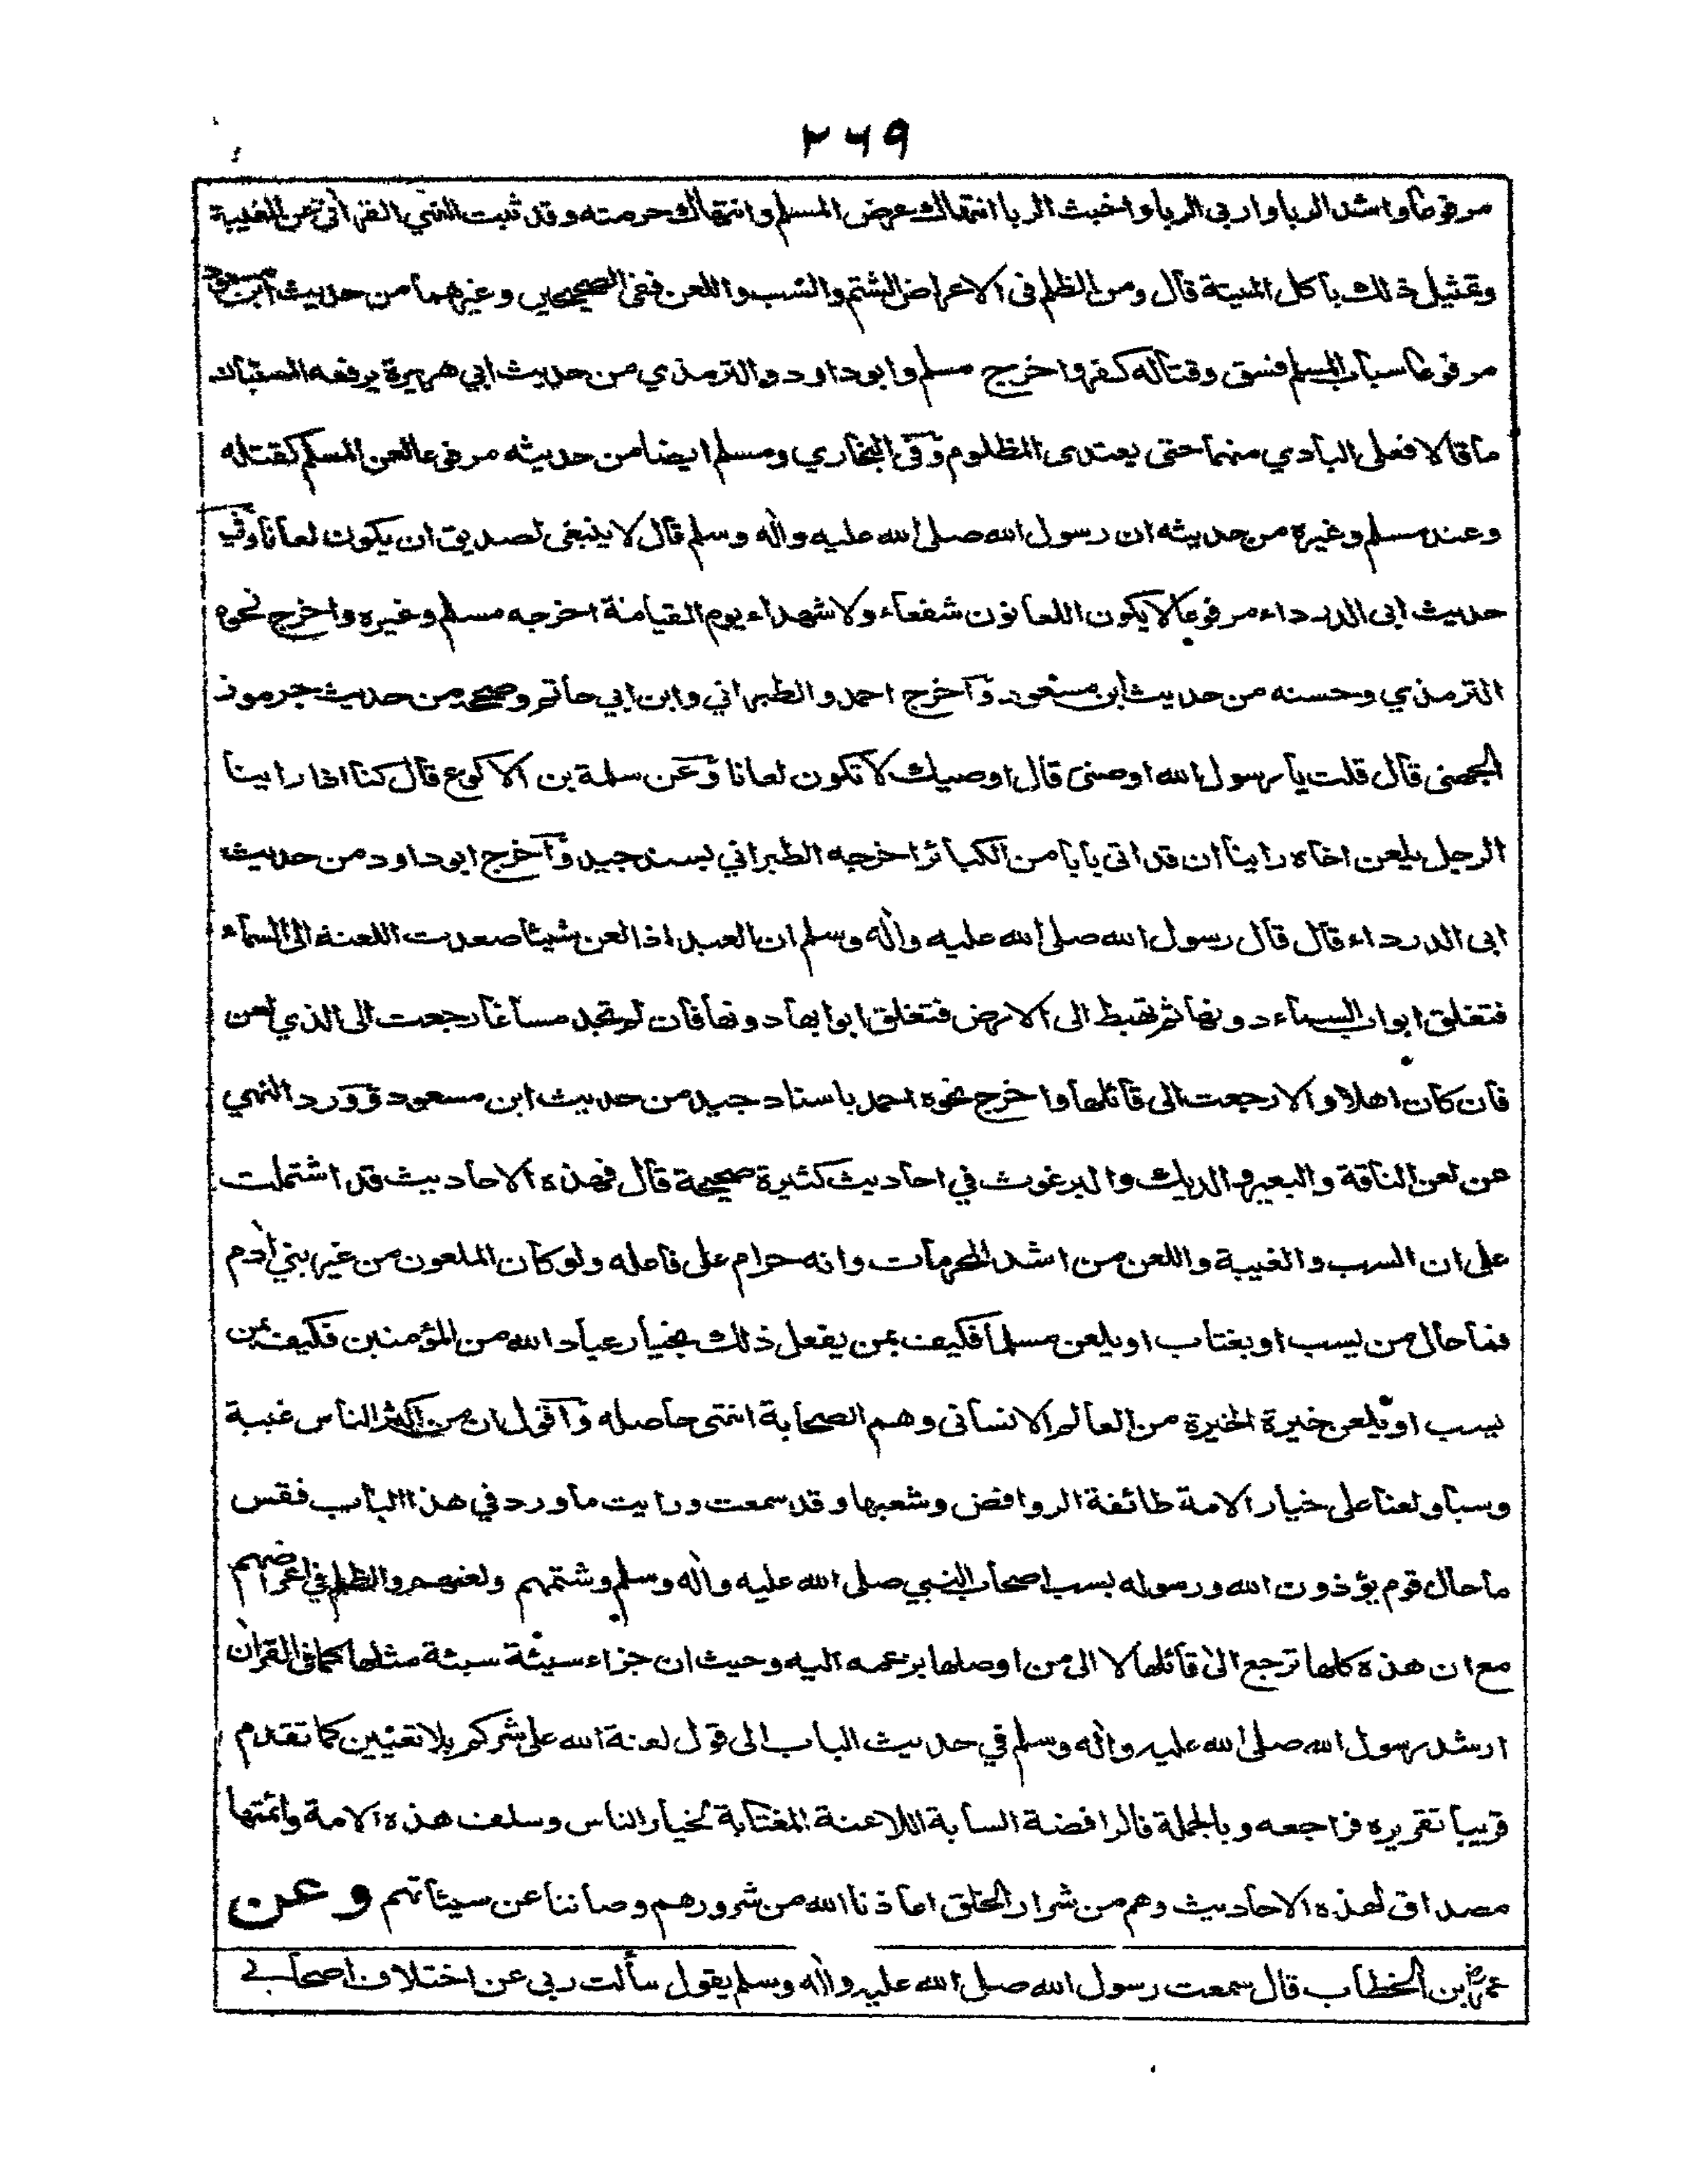 ٢٦٩
مرفوعا واشد الربا واربى الربا واخبث الربا انتهاك عرض المسلم وانتهاك حرمته وقد ثبت النهي القرآني عن الغيبة
وتمثيل ذلك باكل الميتة قال ومن الظلم فى الاعراض الشتم والسب واللعن ففى الصحيحين وغيرهما من حديث ابن مسعود
مرفوعا سباب المسلم فسق وقتاله كفر واخرج مسلم وابو داود والترمذي من حديث ابي هريرة يرفعه المستبان
ما قالا فعلى البادي منهما حتى يعتدى المظلوم وفى البخاري ومسلم ايضا من حديثه مرفوعا لعن المسلم كقتله
وعند مسلم وغيره من حديثه ان رسول الله صلى الله عليه واٰله وسلم قال لا ينبغى لصديق ان يكون لعانا وفي
حديث ابى الدرداء مرفوعا لا يكون اللعانون شفعاء ولا شهداء يوم القيامة اخرجه مسلم وغيره واخرج نحوه
الترمذي وحسنه من حديث ابن مسعود واخرج احمد والطبراني وابن ابي حاتم وصححه من حديث جرموذ
الجهنى قال قلت يا رسول الله اوصنى قال اوصيك لا تكون لعانا وعن سلمة بن الاكوع قال كنا اذا راينا
الرجل يلعن اخاه راينا ان قد اتى بابا من الكبائر اخرجه الطبراني بسند جيد واخرج ابو داود من حديث
ابى الدرداء قال قال رسول الله صلى الله عليه واٰله وسلم ان العبد اذا لعن شيئا صعدت اللعنة الى السماء
فتغلق ابواب السماء دونها ثم تهبط الى الارض فتغلق ابوابها دونها فان لم تجد مساغا رجعت الى الذي لعن
فان كان اهلا والا رجعت الى قائلها واخرج نحوه احمد باسناد جيد من حديث ابن مسعود وورد النهي
عن لعن الناقة والبعير والديك والبرغوث في احاديث كثيرة صحيحة قال فهذه الاحاديث قد اشتملت
على ان السب والغيبة واللعن من اشد المحرمات وانه حرام على فاعله ولو كان الملعون من غير بني اٰدم
فما حال من يسب او يغتاب او يلعن مسلما فكيف بمن يفعل ذلك بخيار عباد الله من المؤمنين فكيف بمن
يسب او يلعن خيرة الخيرة من العالم الانسانى وهم الصحابة انتهى حاصله واقول ان من اكثر الناس غيبة
وسبا ولعنا على خيار الامة طائفة الروافض وشعبها وقد سمعت ورايت ما ورد في هذا الباب فقس
ما حال قوم يؤذون الله ورسوله بسب اصحاب النبي صلى الله عليه واٰله وسلم وشتمهم ولعنهم والظلم في اعراضهم
مع ان هذه كلها ترجع الى قائلها لا الى من اوصلها بزعمه اليه وحيث ان جزاء سيئة سيئة مثلها كما فى القراٰن
ارشد رسول الله صلى الله عليه واٰله وسلم في حديث الباب الى قول لعنة الله على شركم بلا تعيين كما تقدم
قريبا تقريره فراجعه وبالجملة فالرافضة السابة اللاعنة المغتابة لخيار الناس وسلف هذه الامة وائمتها
مصداق لهذه الاحاديث وهم من شرار الخلق اعاذنا الله من شرورهم وصاننا عن سيئاتهم وعن
عمر بن الخطاب قال سمعت رسول الله صلى الله عليه واٰله وسلم يقول سألت ربى عن اختلاف اصحابي